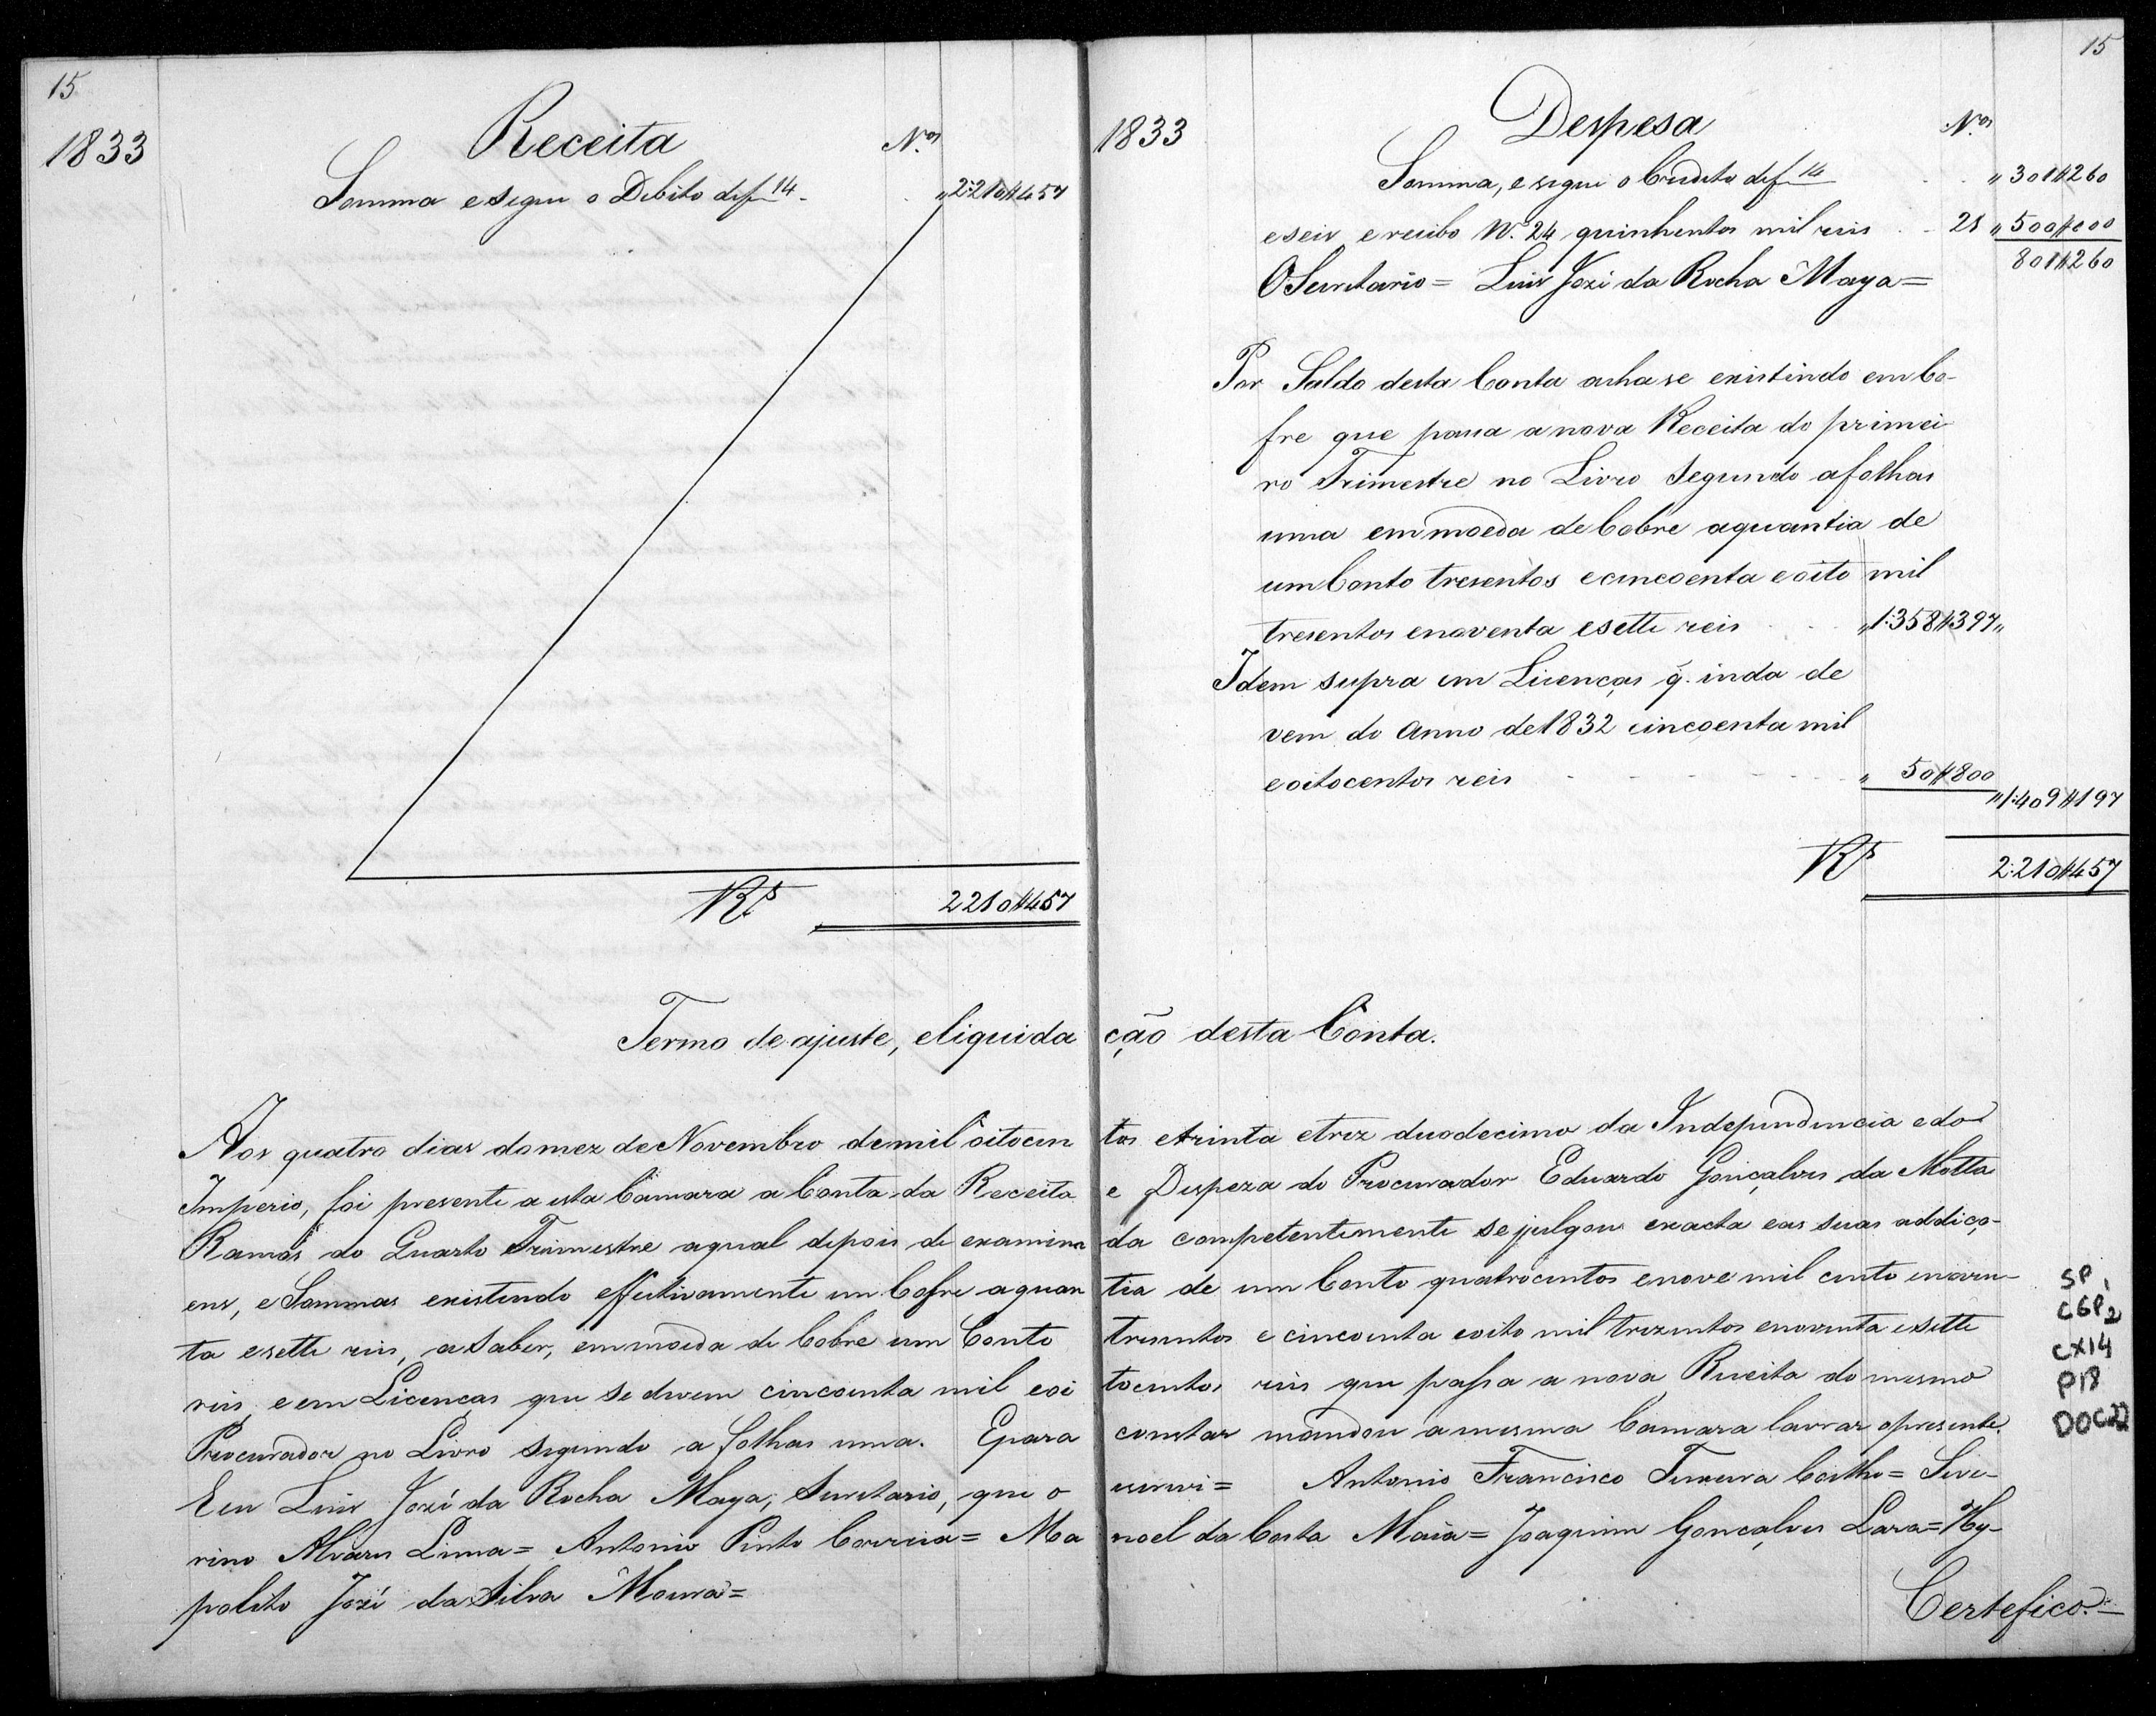 15
1833
Receita
N.os
Somma e segue o Debito def 14 " 2:210#457
Rs 2210#457
15
1833
Despesa
N.os
Somma, e segue o Credito def 14 " 301#260
eseis, erecibo N. 24 quinhentos mil reis 21 " 500#000
801#260
OSecretario = Luis Jozé da Rocha Maya =
Por Saldo desta Conta acha se existindo em Co-
fre que passa a nova Receita do primei
ro Trimestre no Livro Segundo afolhas
uma em moeda de Cobre aquantia de
um Conto tresentos ecincoenta eoito mil
tresentos enoventa esette reis " 1:358#397 "
Idem supra em Licenças q̃. inda de
vem do Anno de 1832 cincoenta mil
eoitocentos reis " 50#800
" 1:409#197
Rs 2:210#457
Termo de ajuste, eliquida ção desta Conta.
Aos quatro dias do mez de Novembro demil oitocen tos etrinta etrez duodecimo da Independencia e do
Imperio, foi presente a esta Camara a Conta da Receita e Despeza do Procurador Eduardo Gonçalves da Motta
Ramos do Quarto Trimestre aqual depois de examina da competentemente se julgou exacta eas suas addiço-
ens, e Sommas existindo effectivamente em Cofre a quan tia de um Conto quatrocentos enove mil cento enoven-
ta esette reis, a Saber, em moeda de Cobre um Conto tresentos e cincoenta eoito mil trezentos enoventa esette
reis, e em Licenças que se devem cincoenta mil eoi tocentos reis que passa a nova Receita do mesmo
Procurador no Livro segundo a folhas uma. Epara constar mandou a mesma Camara lavrar opresente.
Eeu Luis Jozé da Rocha Maya, Secretario, que o escrevi = Antonio Francisco Teixeira Coelho = Seve-
rino Alvares Lima = Antonio Pinto Correia = Ma noel da Costa Maia = Joaquim Gonçalves Lara = Hy-
polito Jozé da Silva Moura =
Certefico. =
SP,
CGP2
CX14
P18
DOC22